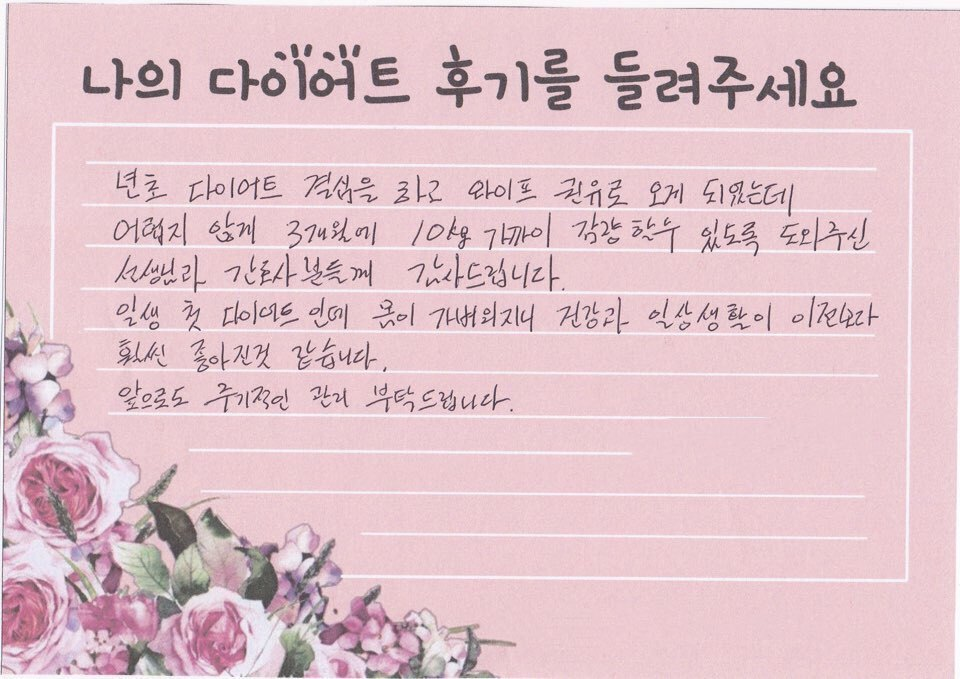 나의 다이어트 후기를 들려주세요
년초 다이어트 결심을 하고 와이프 권유로 오게 되었는데
어렵지 않게 3개월에 10kg 가까이 감량할수 있도록 도와주신
선생님과 간호사분들께 감사드립니다.
일생 첫 다이어트인데 몸이 가벼워지니 건강과 일상생활이 이전보다
훨씬 좋아진것 같습니다.
앞으로도 주기적인 관리 부탁드립니다.